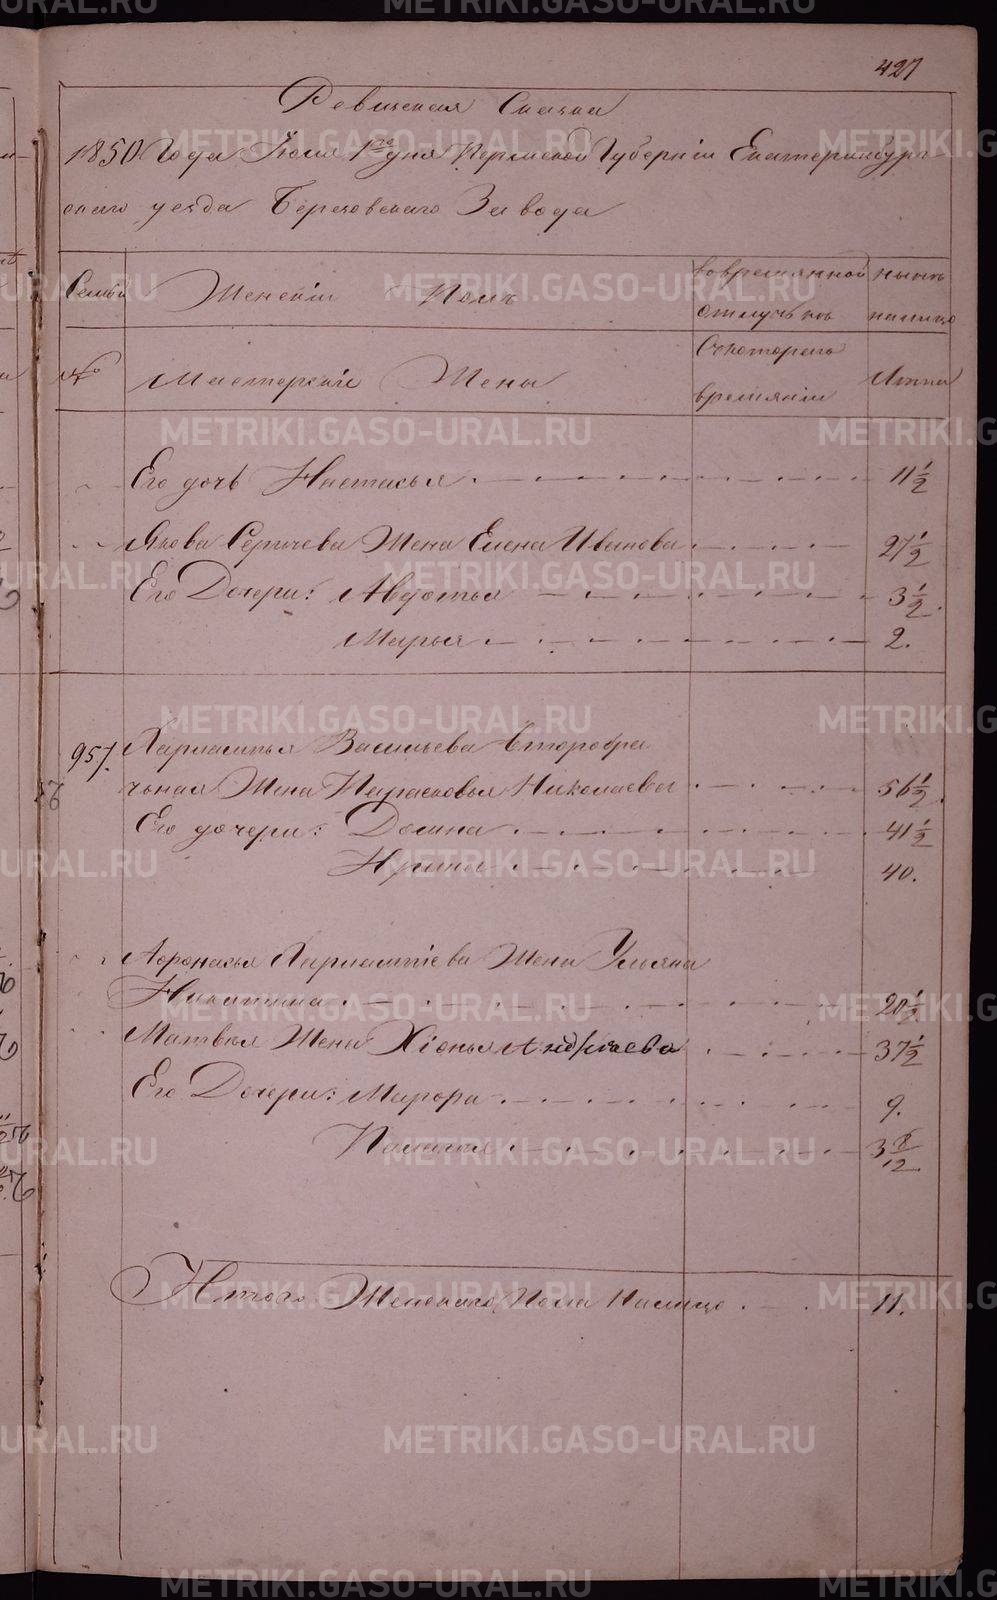 427
Ревизская Сказка
1850 Года Июля 1го дня Пермской Губернiи Екатеринбург-
скаго уезда Березовскаго Завода
Семьи Женскiй Полъ во временной ныне
отлучке налицо
№ Мастерскiе Жены Скотораго Лета
времяни
Его дочь Настасья 11 1/2
Якова Сергеева Жена Елена Иванова 27 1/2
Его Дочери: Авдотья 3 1/2.
Марья 2.
957. Харлампья Васильева Второбра
чьная Жена Парасковья Николаева 56 1/2.
Его дочери: Домна 41 1/2
Ирина 40.
Афонасья Харлампiева Жена Ульяна
Никитина 20 1/2
Матвея Жена Хiонья Андреева 37 1/2
Его Дочери: Мавра 9.
3 8/12.
Итого Женскаго Пола Налицо 11.
METRIKI.GASO-URAL.RU